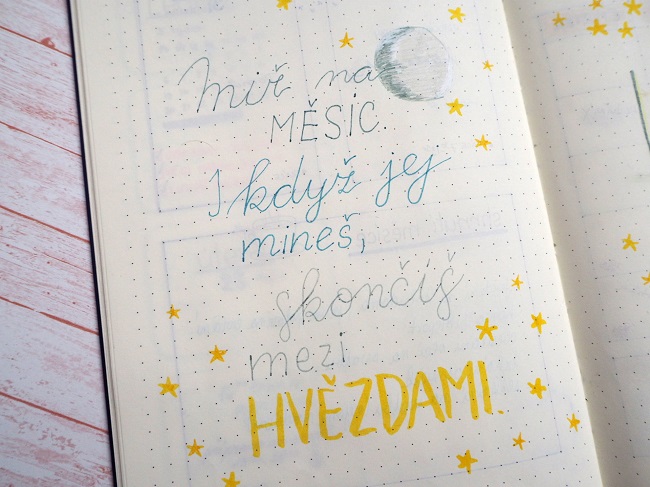 Miř na
MĚSÍC.
I když jej
mineš,
skončíš
mezi
HVĚZDAMI.